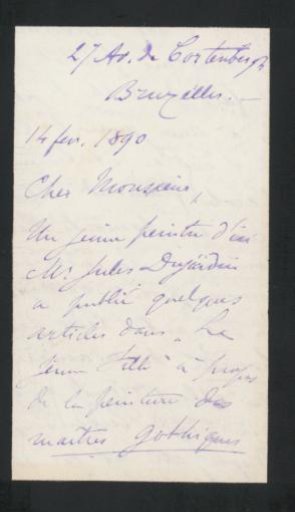 27 Av. de Cortenbergh
Bruxelles. —
14 fev. 1890
Cher Monsieur,
Un jeune peintre d'ici
Mr Jules Dujardin
a publié quelques
articles dans "La
jeune à propos
de la peinture des
maîtres gothiques